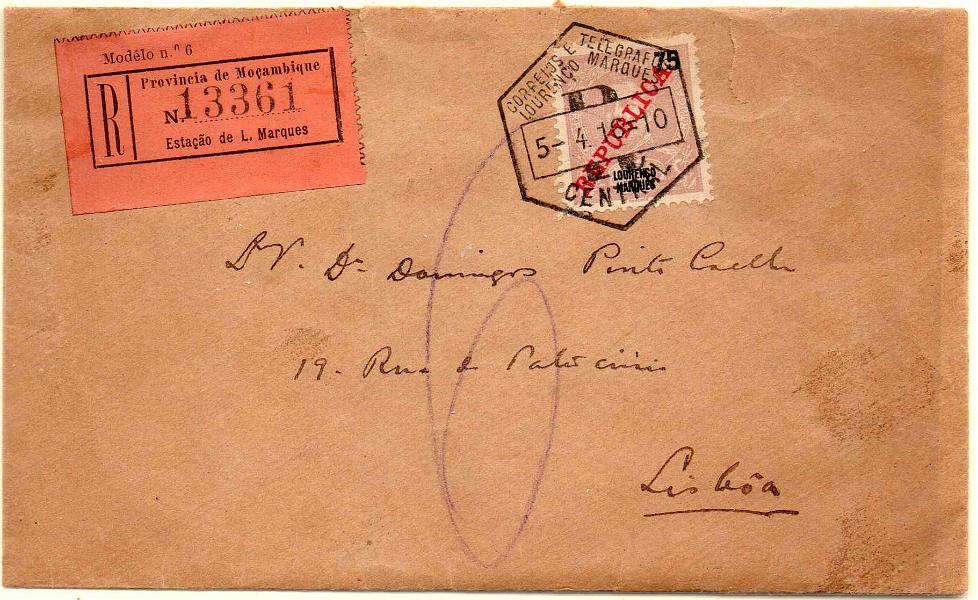 Modélo n.º 6
R
Provincia de Moçambique
N. 13361
Estação de L. Marques
CORREIOS E TELEGRAFOS
LOURENÇO MARQUES
5- 4. 16-10
CENTRAL
75
REPUBLICA
LOURENÇO
MARQUES
Dr. Domingos Pinto Coelho
19. Rua do Patrocinio
Lisbôa